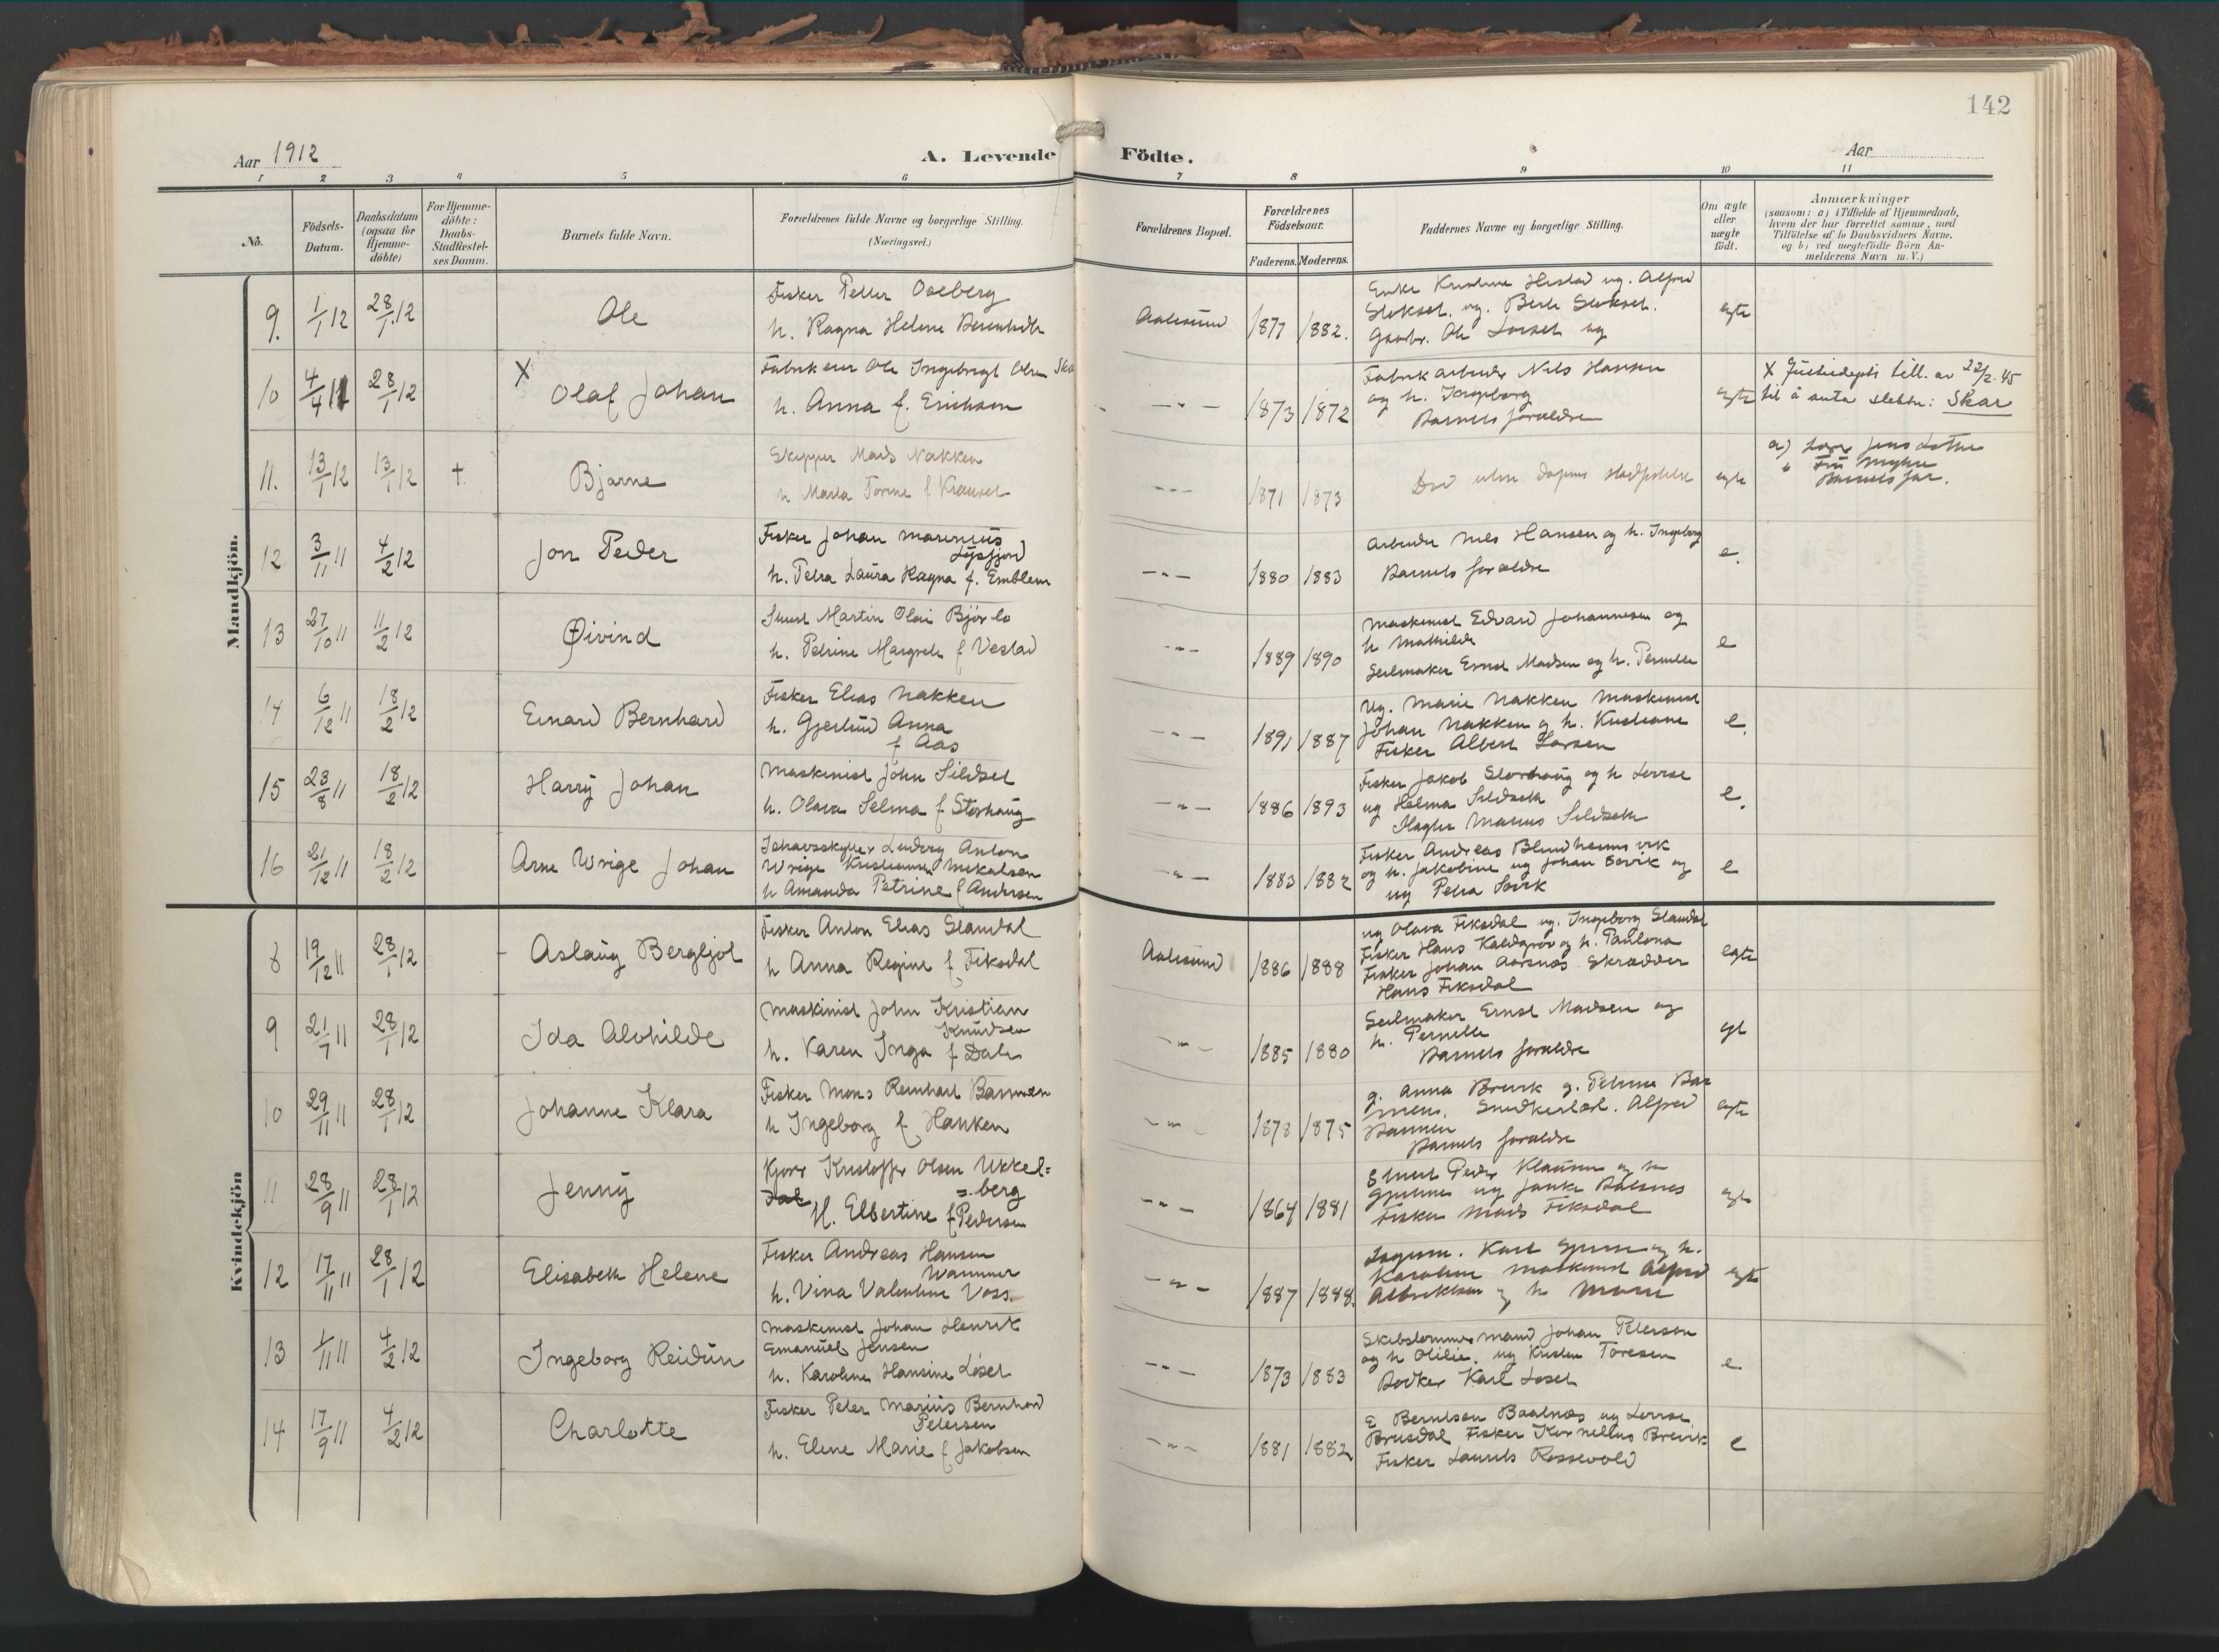 142
Aar 1912
A. Levende Födte.
Aar
1 2 3 4 5 6 7 8 9 10 11
No.
Födsels-
Datum.
Daabsdatum
(ogsaa for
Hjemme-
döbte)
For Hjemme-
döbte:
Daabs-
Stadfæstel-
ses Datum.
Barnets fulde Navn.
Forældrenes fulde Navne og borgerlige Stilling.
(Næringsvei.)
Forældrenes Bopæl.
Forældrenes
Födselsaar.
Faderens. Moderens.
Faddernes Navne og borgerlige Stilling.
Om ægte
eller
uægte
födt.
Anmærkninger
(saasom: a) i Tilfælde af Hjemmedaab,
hvem der har forrettet samme, med
Tilföielse af to Daabsvidners Navne,
og b) ved uegtefödte Börn An-
melderens Navn m. V.)
Mandkjön.
9. 1/1 12 28/1 12 Ole
Fisker Petter Oseberg
h. Ragna Helene
Aalesund 1877 1882.
Enke Kristine ug. Alfred
ug. Berte
Ole og
egte
10 4/4 11 28/1 12 X Olaf Johan
Fabrikeier Ole Ingebrigt Olsen
h. Anna f. Erichsen
-"- 1873 1872
Fabrikarbeider Nils Hansen
og h. Ingeborg
Barnets forældre
egte
X Justisdepts till. av 22/2. 45
til å anta slektsn: Skar
11. 13/1 12 13/1 12 + Bjarne
Skipper Mads Nakken
h
-"- 1871 1873
Död uden daapens stadfestelse
egte
a)
" Fru Myhre
Barnets far.
12 3/11 11 4/2 12 Jon Peder
Fisker Johan Marinius
Lysfjord
h. Petra Laura Ragna f. Emblem
-"- 1880 1883
Arbeider Nils Hansen og h. Ingeborg
Barnets forældre
e.
13 27/10 11 11/2 12 Øivind
Martin Olai Björlo
h. Petrine Margrete f Vestad
-"- 1889 1890
Maskinist Edvard Johannesen og
h Mathilde
Seilmaker Ernst Madsen og h. Pernille
e
14 6/12 11 18/2 12 Einard Bernhard
Fisker Elias Nakken
h. Gjertrud Anna
f Aas
-"- 1891 1887
Ug. Marie Nakken Maskinist
Johan Nakken og h. Kristiane
Fisker Albert Larsen
e.
15 23/8 11 18/2 12 Harry Johan
Maskinist John Sildset
h. Olava Selma f Storhaug
-"- 1886 1893
Fisker Jakob Storhaug og h Lovise
ug Helma Sildseth
Marius Sildseth
e.
16 21/12 11 18/2 12 Arne Wrige Johan
Ludvig Anton
Wrige Mikalsen
h Amanda Petrine f Andersen
-"- 1883 1882
Fisker Andreas Blindheimsvik
og h. Jakobine ug Johan Sovik og
ug Petra Sovik
e
Kvindekjön
8 19/12 11 28/1 12 - Aslaug Bergljot
Fisker Anton Elias Slamdal
h Anna Regine f Fiksdal
Aalesund 1886 1888
ug Olava Fiksdal ug. Ingeborg Slamdal
Fisker Hans og h. Paulona
Fisker Johan Aarsnes Skrædder
Hans Fiksdal
egte
9 21/7 11 28/1 12 Ida Alvhilde
Maskinist John Kristian
Knudsen
h. Karen Inga f Dale
-"- 1885 1880
Seilmaker Ernst Madsen og
h. Pernille
Barnets forældre
egt
10 29/11 11 28/1 12 Johanne Klara
Fisker Mons Reinhart Barmen
h Ingeborg f Hanken
-"- 1873 1875
g. Anna Brevik g. Petrine Bar
mens. Snedkerlærl. Alfred
Barmen
Barnets forældre
egte
11 28/9 11 28/1 12 Jenny
Kjører Kristoffer Olsen Ukkel=
=berg
H. Elbertine f Pedersen
-"- 1864 1881
Peder Klausen og h
ug
Fisker Mads Fiksdal
egte
12 17/11 11 28/1 12 Elisabeth Helene
Fisker Andreas Hansen
h. Vina Valentine Voss.
-"- 1887 1888.
Karl og h.
Karoline Maskinist Alfred
Albriktsen og h Marie
egte
13 1/11 11 4/2 12 Ingeborg Reidun
Maskinist Johan Henrik
Emanuel Jensen
h. Karoline Hansine Löset
-"- 1873 1883
Skibstømmermand Johan Peterson
og h Otilie. ug Kristen Toresen
Bødker Karl Loset
e
14 17/9 11 4/2 12 Charlotte
Fisker Peter Marius Bernhard
Petersen
h. Eline Marie f Jakobsen
-"- 1881 1882
E Berntsen Baalnes ug Lovise
Brusdal Fisker Kornelius Brevik
Fisker Laurits Rossevold
e